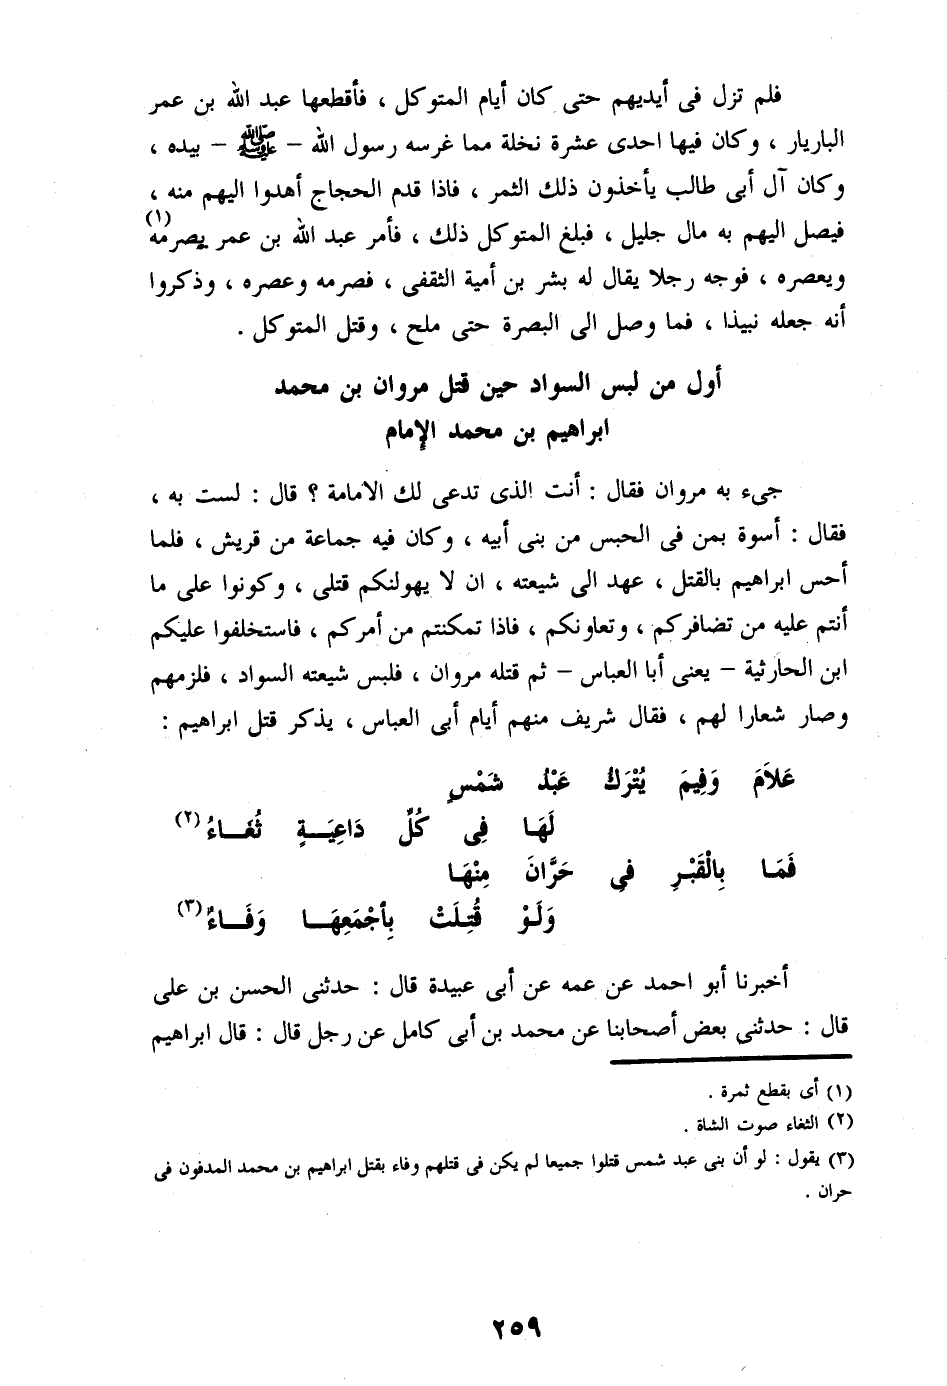 فلم تزل فى أيديهم حتى كان أيام المتوكل ، فأقطعها عبد الله بن عمر
الباريار ، وكان فيها احدى عشرة نخلة مما غرسه رسول الله – ﷺ – بيده ،
وكان آل أبى طالب يأخذون ذلك الثمر ، فاذا قدم الحجاج أهدوا اليهم منه ،
فيصل اليهم به مال جليل ، فبلغ المتوكل ذلك ، فأمر عبد الله بن عمر يصرمه (١)
ويعصره ، فوجه رجلا يقال له بشر بن أمية الثقفى ، فصرمه وعصره ، وذكروا
أنه جعله نبيذا ، فما وصل الى البصرة حتى ملح ، وقتل المتوكل .
أول من لبس السواد حين قتل مروان بن محمد
ابراهيم بن محمد الإمام
جىء به مروان فقال : أنت الذى تدعى لك الامامة ؟ قال : لست به ،
فقال : أسوة بمن فى الحبس من بنى أبيه ، وكان فيه جماعة من قريش ، فلما
أحس ابراهيم بالقتل ، عهد الى شيعته ، ان لا يهولنكم قتلى ، وكونوا على ما
أنتم عليه من تضافركم ، وتعاونكم ، فاذا تمكنتم من أمركم ، فاستخلفوا عليكم
ابن الحارثية – يعنى أبا العباس – ثم قتله مروان ، فلبس شيعته السواد ، فلزمهم
وصار شعارا لهم ، فقال شريف منهم أيام أبى العباس ، يذكر قتل ابراهيم :
عَلاَمَ وَفِيمَ يُتْرَكُ عَبْدُ شَمْسٍ
لَهَا فِى كُلِّ دَاعِيَةٍ ثُغَاءُ (٢)
فَمَا بِالْقَبْرِ فِى حَرَّانَ مِنْهَا
وَلَوْ قُتِلَتْ بِأَجْمَعِهَا وَفَاءُ (٣)
أخبرنا أبو احمد عن عمه عن أبى عبيدة قال : حدثنى الحسن بن على
قال : حدثنى بعض أصحابنا عن محمد بن أبى كامل عن رجل قال : قال ابراهيم
(١) أى بقطع ثمرة .
(٢) الثغاء صوت الشاة .
(٣) يقول : لو أن بنى عبد شمس قتلوا جميعا لم يكن فى قتلهم وفاء بقتل ابراهيم بن محمد المدفون فى
حران .
٢٥٩